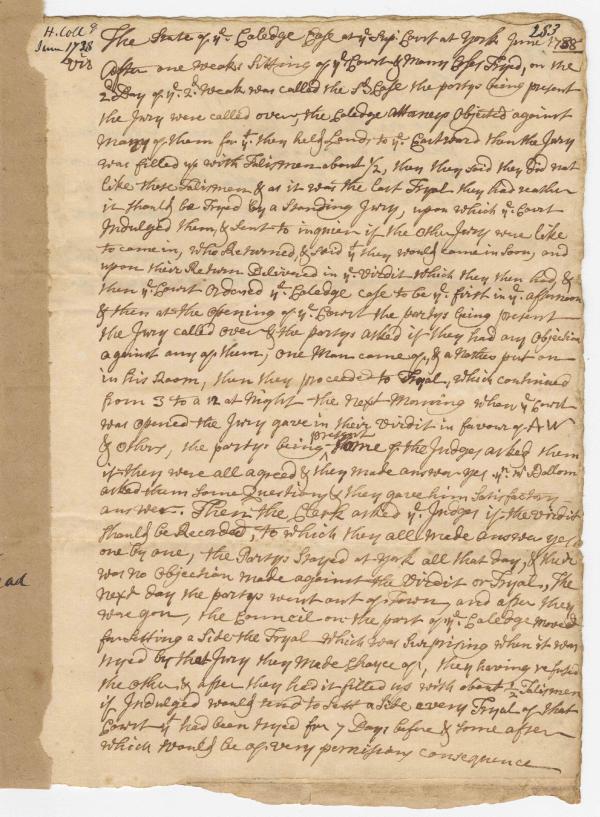 H. Coll 9
Jun 1738
Viz
283
The State of ye Coledge Case at ye Supr Court at York June 1738
After one weaks Sitting of ye Court & Many Cases Tryed, on the
2d Day of ye 2d Weak was called the sd Case the partys being present
the Jury were called over, the Coledge Attaneys Objected against
Many of them for yt they held Lands to ye Eastward then the Jury
was filled up with Talismen about 1/2, then they said they did not
like those Talismen & as it was the last Tryal they had reather
it should be Tryed by a Standing Jury, upon which ye Court
Indulged them, & Sent to inquier if the Other Jury were like
to come in, who Returned, & said yt they would come in soon, and
upon their Return Delivered in ye Virdit which they then had &
then ye Court Ordered ye Coledge case to be ye first in ye afternoon
& then at the Opening of ye Court the partys being present
the Jury called over & the partys asked if they had any Objection
against any of them, one Man came of, & another put on
in his Room, then they proceeded to Tryal, which continued
from 3 to a 12 at Night the next Morning when ye Court
was opened the Jury gave in their Virdit in favour of AW
& others, the partys being present some of the Judges asked them
if they were all agreed & they made answer yes
asked them Some Questions & they gave him Satisfactory
answer. Then the Clerk asked ye Judges if the Virdit
should be Recorded, to which they all made answer yes
one by one, the Partys Stayed at York all that day, & their
was no Objection made against the Virdit or Tryal, The
next day the partys went out of Town, and after they
was gon, the Council on the part of ye Coledge moved
for Setting a Side the Tryal which was Surprising when it was
tryed by that Jury they made Choyce of, they having refused
the other & after they had it filled up with about 1/2 Talismen
if Indulged would tend to sett a Side every Tryal of that
Court yt had been tryed for 7 Days before & some after
which would be of very pernissiory consequence
ad